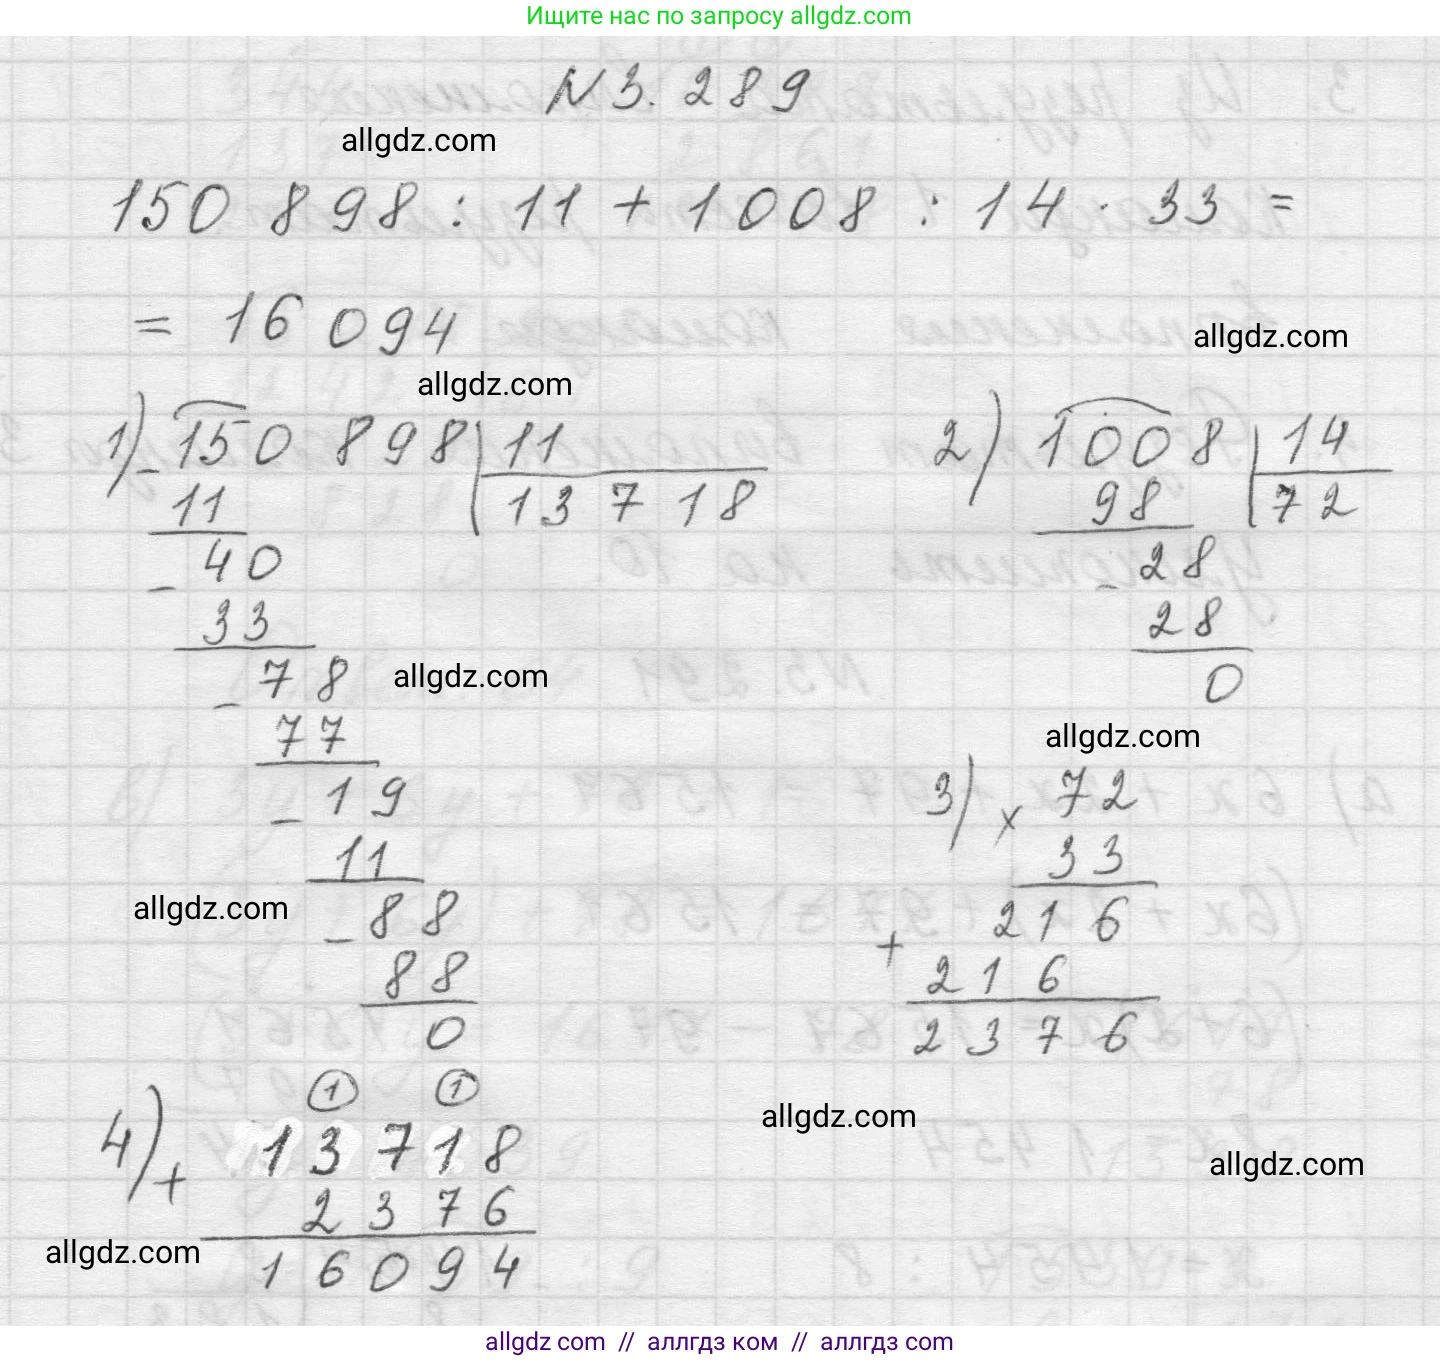 Ищите нас по запросу allgdz.com
N3.289
allgdz.com
150 898 : 11 + 1008 : 14 · 33 =
= 16 094
allgdz.com
allgdz.com
1) - 150 898 | 11
11 | 13 718
- 40
33
- 78
77
allgdz.com
- 19
11
allgdz.com
- 88
88
0
2) 1008 | 14
98 | 72
- 28
28
0
allgdz.com
3) × 72
33
216
+
216
2376
allgdz.com
4) 1 1
+ 13718
2376
16094
allgdz.com
allgdz.com
allgdz.com // аллгдз ком // аллгдз com